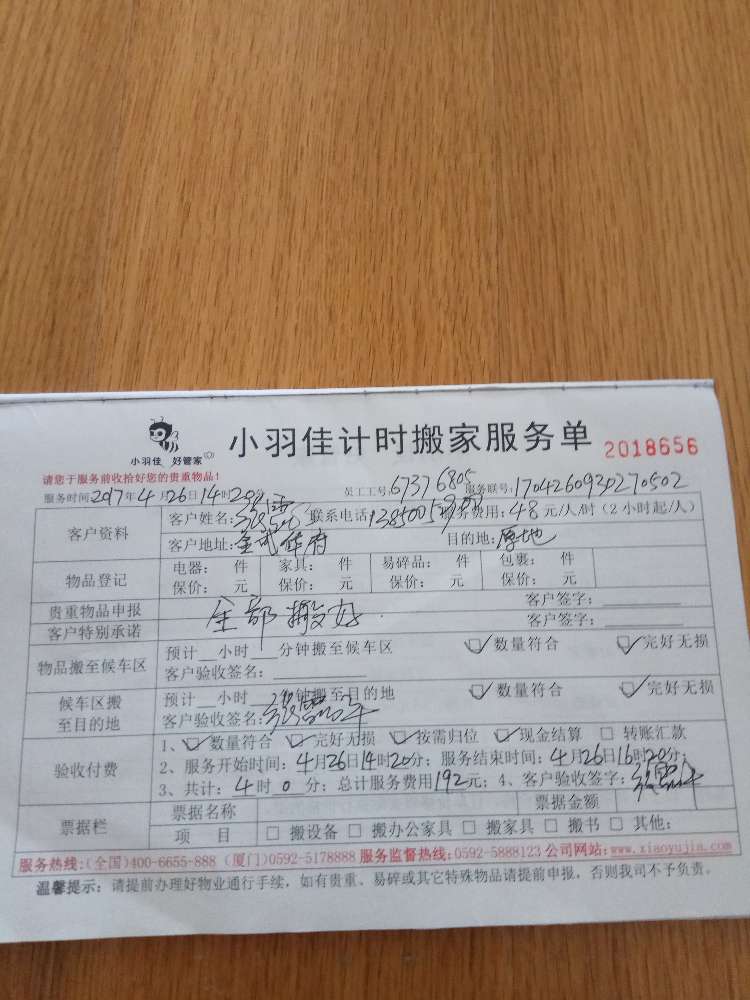 小羽佳 好管家
小羽佳计时搬家服务单 2018656
请您于服务前收拾好您的贵重物品！
服务时间2017年4月26日14时20分 员工工号:67376805 服务联号:1704260930270502
客户资料 客户姓名: 联系电话: 服务费用:48元/人/时(2小时起/人)
客户地址:金武华府 目的地:原地
物品登记 电器: 件 家具: 件 易碎品: 件 包裹: 件
保价: 元 保价: 元 保价: 元 保价: 元
贵重物品申报 全部搬好. 客户签字:
客户特别承诺 客户签字:
物品搬至候车区 预计__小时__分钟搬至候车区 ☑数量符合 ☑完好无损
客户验收签名:
候车区搬至目的地 预计__小时__分钟搬至目的地 ☑数量符合 ☑完好无损
客户验收签名:
验收付费 1、☑数量符合 ☑完好无损 ☑按需归位 ☑现金结算 □转账汇款
2、服务开始时间:4月26日14时20分; 服务结束时间:4月26日16时20分;
3、共计:4时0分; 总计服务费用192元; 4、客户验收签字:
票据栏 票据名称 票据金额
项 目 □搬设备 □搬办公家具 □搬家具 □搬书 □其他:
服务热线:(全国)400-6655-888 (厦门)0592-5178888 服务监督热线:0592-5888123 公司网站:www.xiaoyujia.com
温馨提示: 请提前办理好物业通行手续，如有贵重、易碎或其它特殊物品请提前申报，否则我司不予负责。